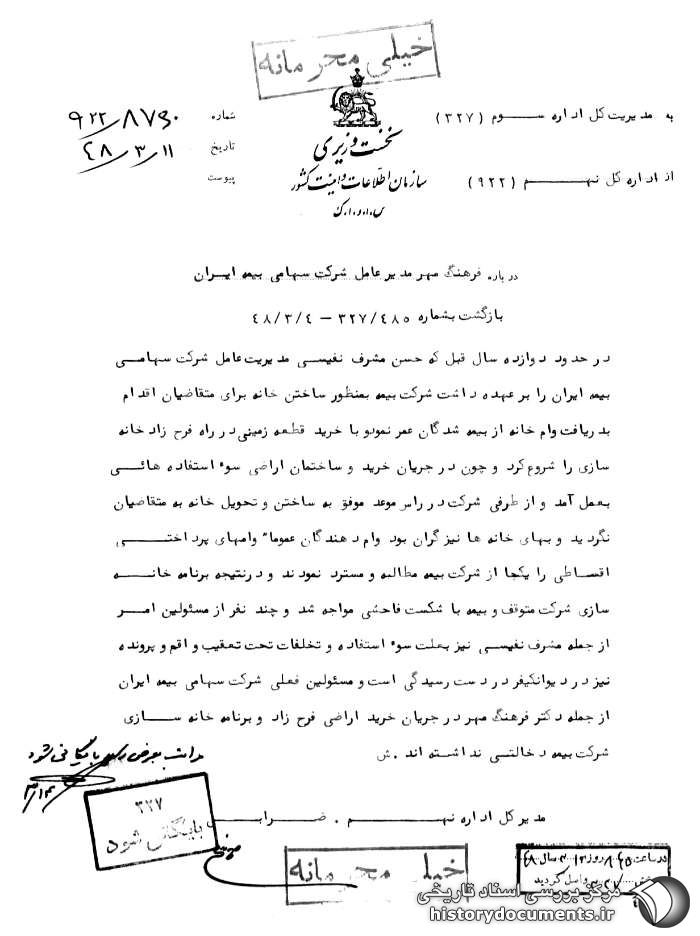 خیلی محرمانه
به مدیریت کل اداره ســوم (۳۲۷)
از اداره کل نهــم (۹۲۲)
نخست وزیری
سازمان اطلاعات و امنیت کشور
س.ا.و.ا.ک
شماره
تاریخ ۴۸/۳/۱۱
پیوست
درباره فرهنگ مهر مدیر عامل شرکت سهامی بیمه ایـران
بازگشت بشماره ۳۲۷/۴۸۵ – ۴۸/۳/۴
در حدود دوازده سال قبل که حسن مشرف نفیسی مدیریت عامل شرکت سهامی
بیمه ایران را بر عهده داشت شرکت بیمه بمنظور ساختن خانه برای متقاضیان اقدام
بدریافت وام خانه از بیمه شدگان عمر نمود و با خرید قطعه زمینی در راه فرح زاد خانه
سازی را شروع کرد و چون در جریان خرید و ساختمان اراضی سوء استفاده هائــی
بعمل آمد و از طرفی شرکت در راس موعد موفق به ساختن و تحویل خانه به متقاضیان
نگردید و بهای خانه ها نیز گران بود وام دهندگان عموما" وامهای پرداختــی
اقساطی را یکجا از شرکت بیمه مطالبه و مسترد نمودند و درنتیجه برنامه خانــه
سازی شرکت متوقف و بیمه با شکست فاحشی مواجه شد و چند نفر از مسئولین امــر
از جمله مشرف نفیسی نیز بعلت سوء استفاده و تخلفات تحت تعقیب واقع و پرونده
نیز در دیوانکیفر در دست رسیدگی است و مسئولین فعلی شرکت سهامی بیمه ایران
از جمله دکتر فرهنگ مهر در جریان خرید اراضی فرح زاد و برنامه خانه ســازی
شرکت بیمه دخالتی نداشته اند . ش
بایگانی شود
۳/۱۴
۳۲۷
بایگانی شود
مدیر کل اداره نهــم . ضـرابــی
خیلی محرمانه
در ساعت روز سال ۴۸
واصل گردید
مرکز بررسی اسناد تاریخی
historydocuments.ir